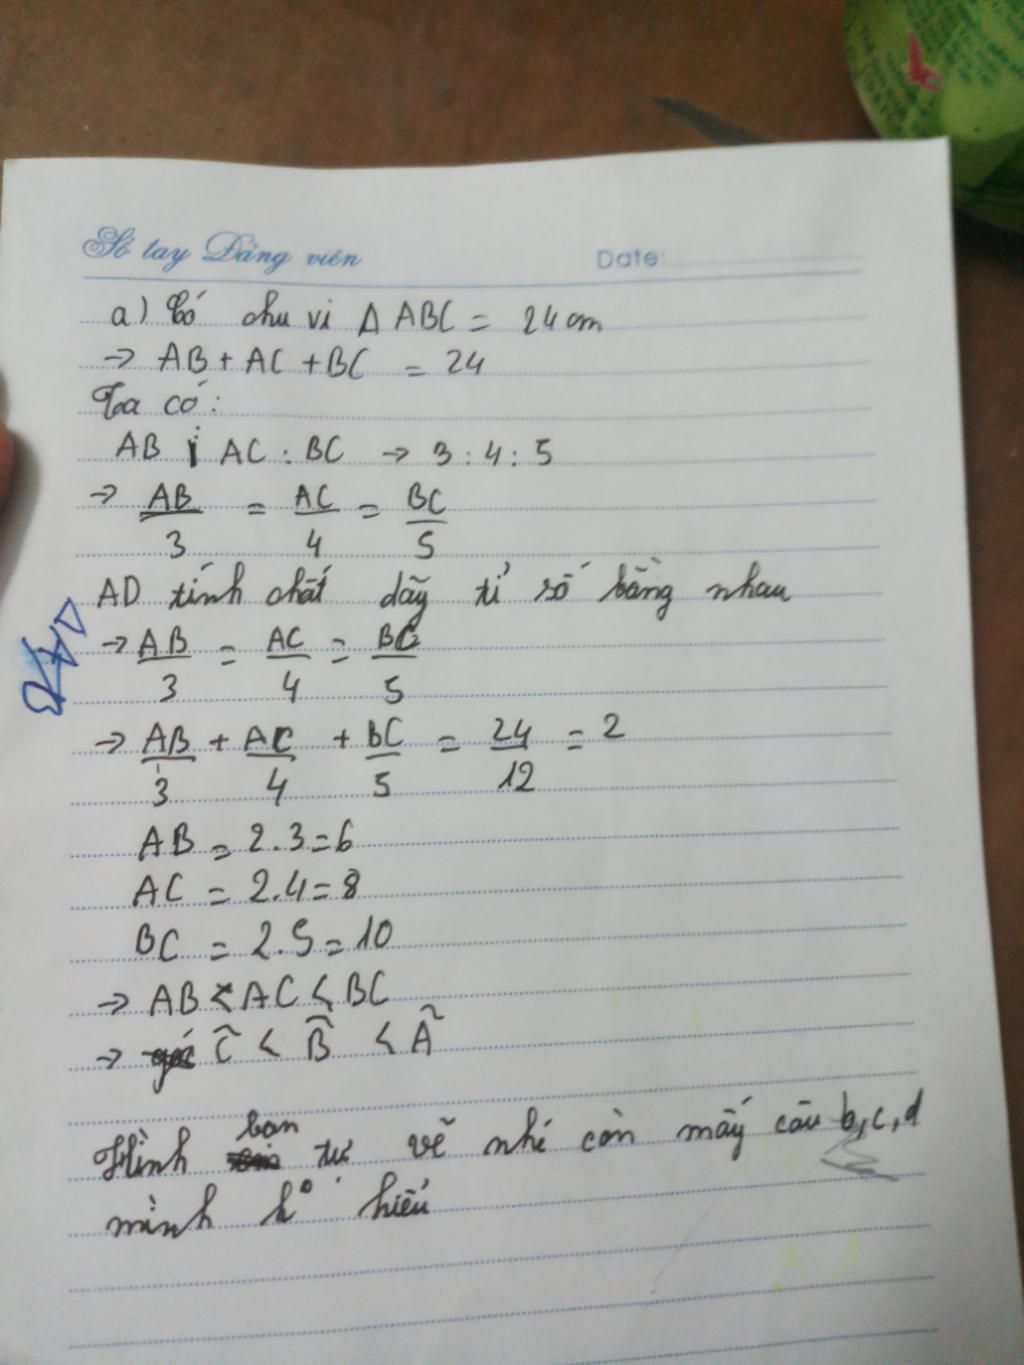 Sổ tay Đảng viên Date:
a) Có chu vi Δ ABC = 24 cm
→ AB + AC + BC = 24
Ta có:
AB : AC : BC → 3 : 4 : 5
→ AB/3 = AC/4 = BC/5
AD tính chất dãy tỉ số bằng nhau
→ AB/3 = AC/4 = BC/5
→ AB/3 + AC/4 + BC/5 = 24/12 = 2
AB = 2.3 = 6
AC = 2.4 = 8
BC = 2.5 = 10
→ AB < AC < BC
→ C̃ < B̃ < Ã
Hình bạn tự vẽ nhé còn mấy câu b, c, d
mình k° hiểu